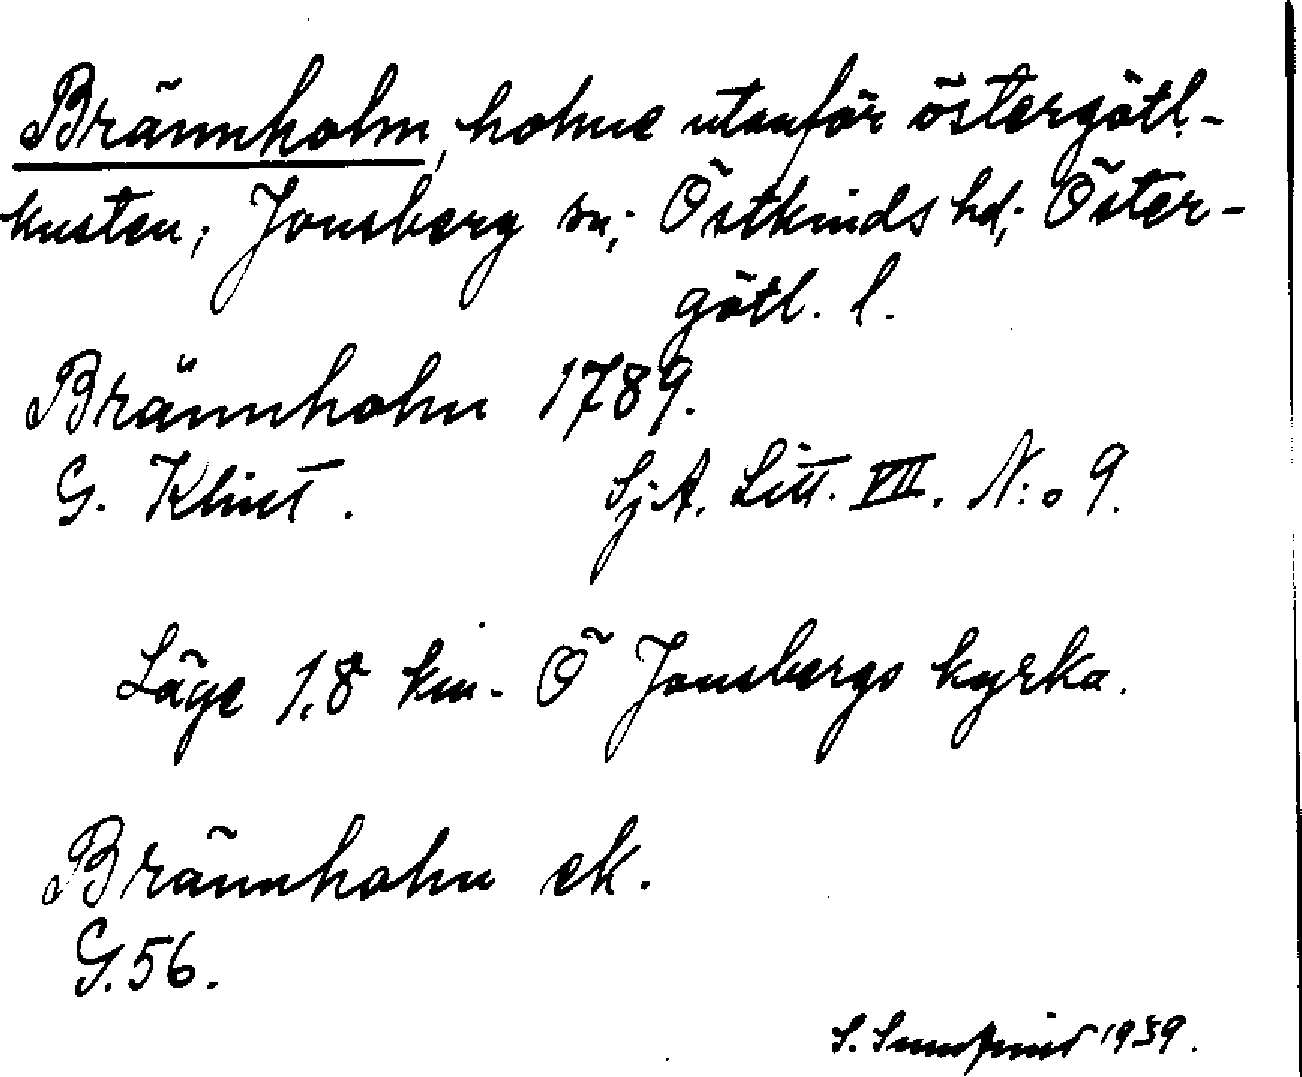 Brännholm, holme utanför östergötl.-
kusten; Jonsberg sn; Östkinds hd; Öster-
götl. l.
Brännholm 1789.
G. Klint. Sj. A. Litt. VII. N:o 9.
Läge 1,8 km. Ö Jonsbergs kyrka.
Brännholm ek.
G. 56.
S. 1939.